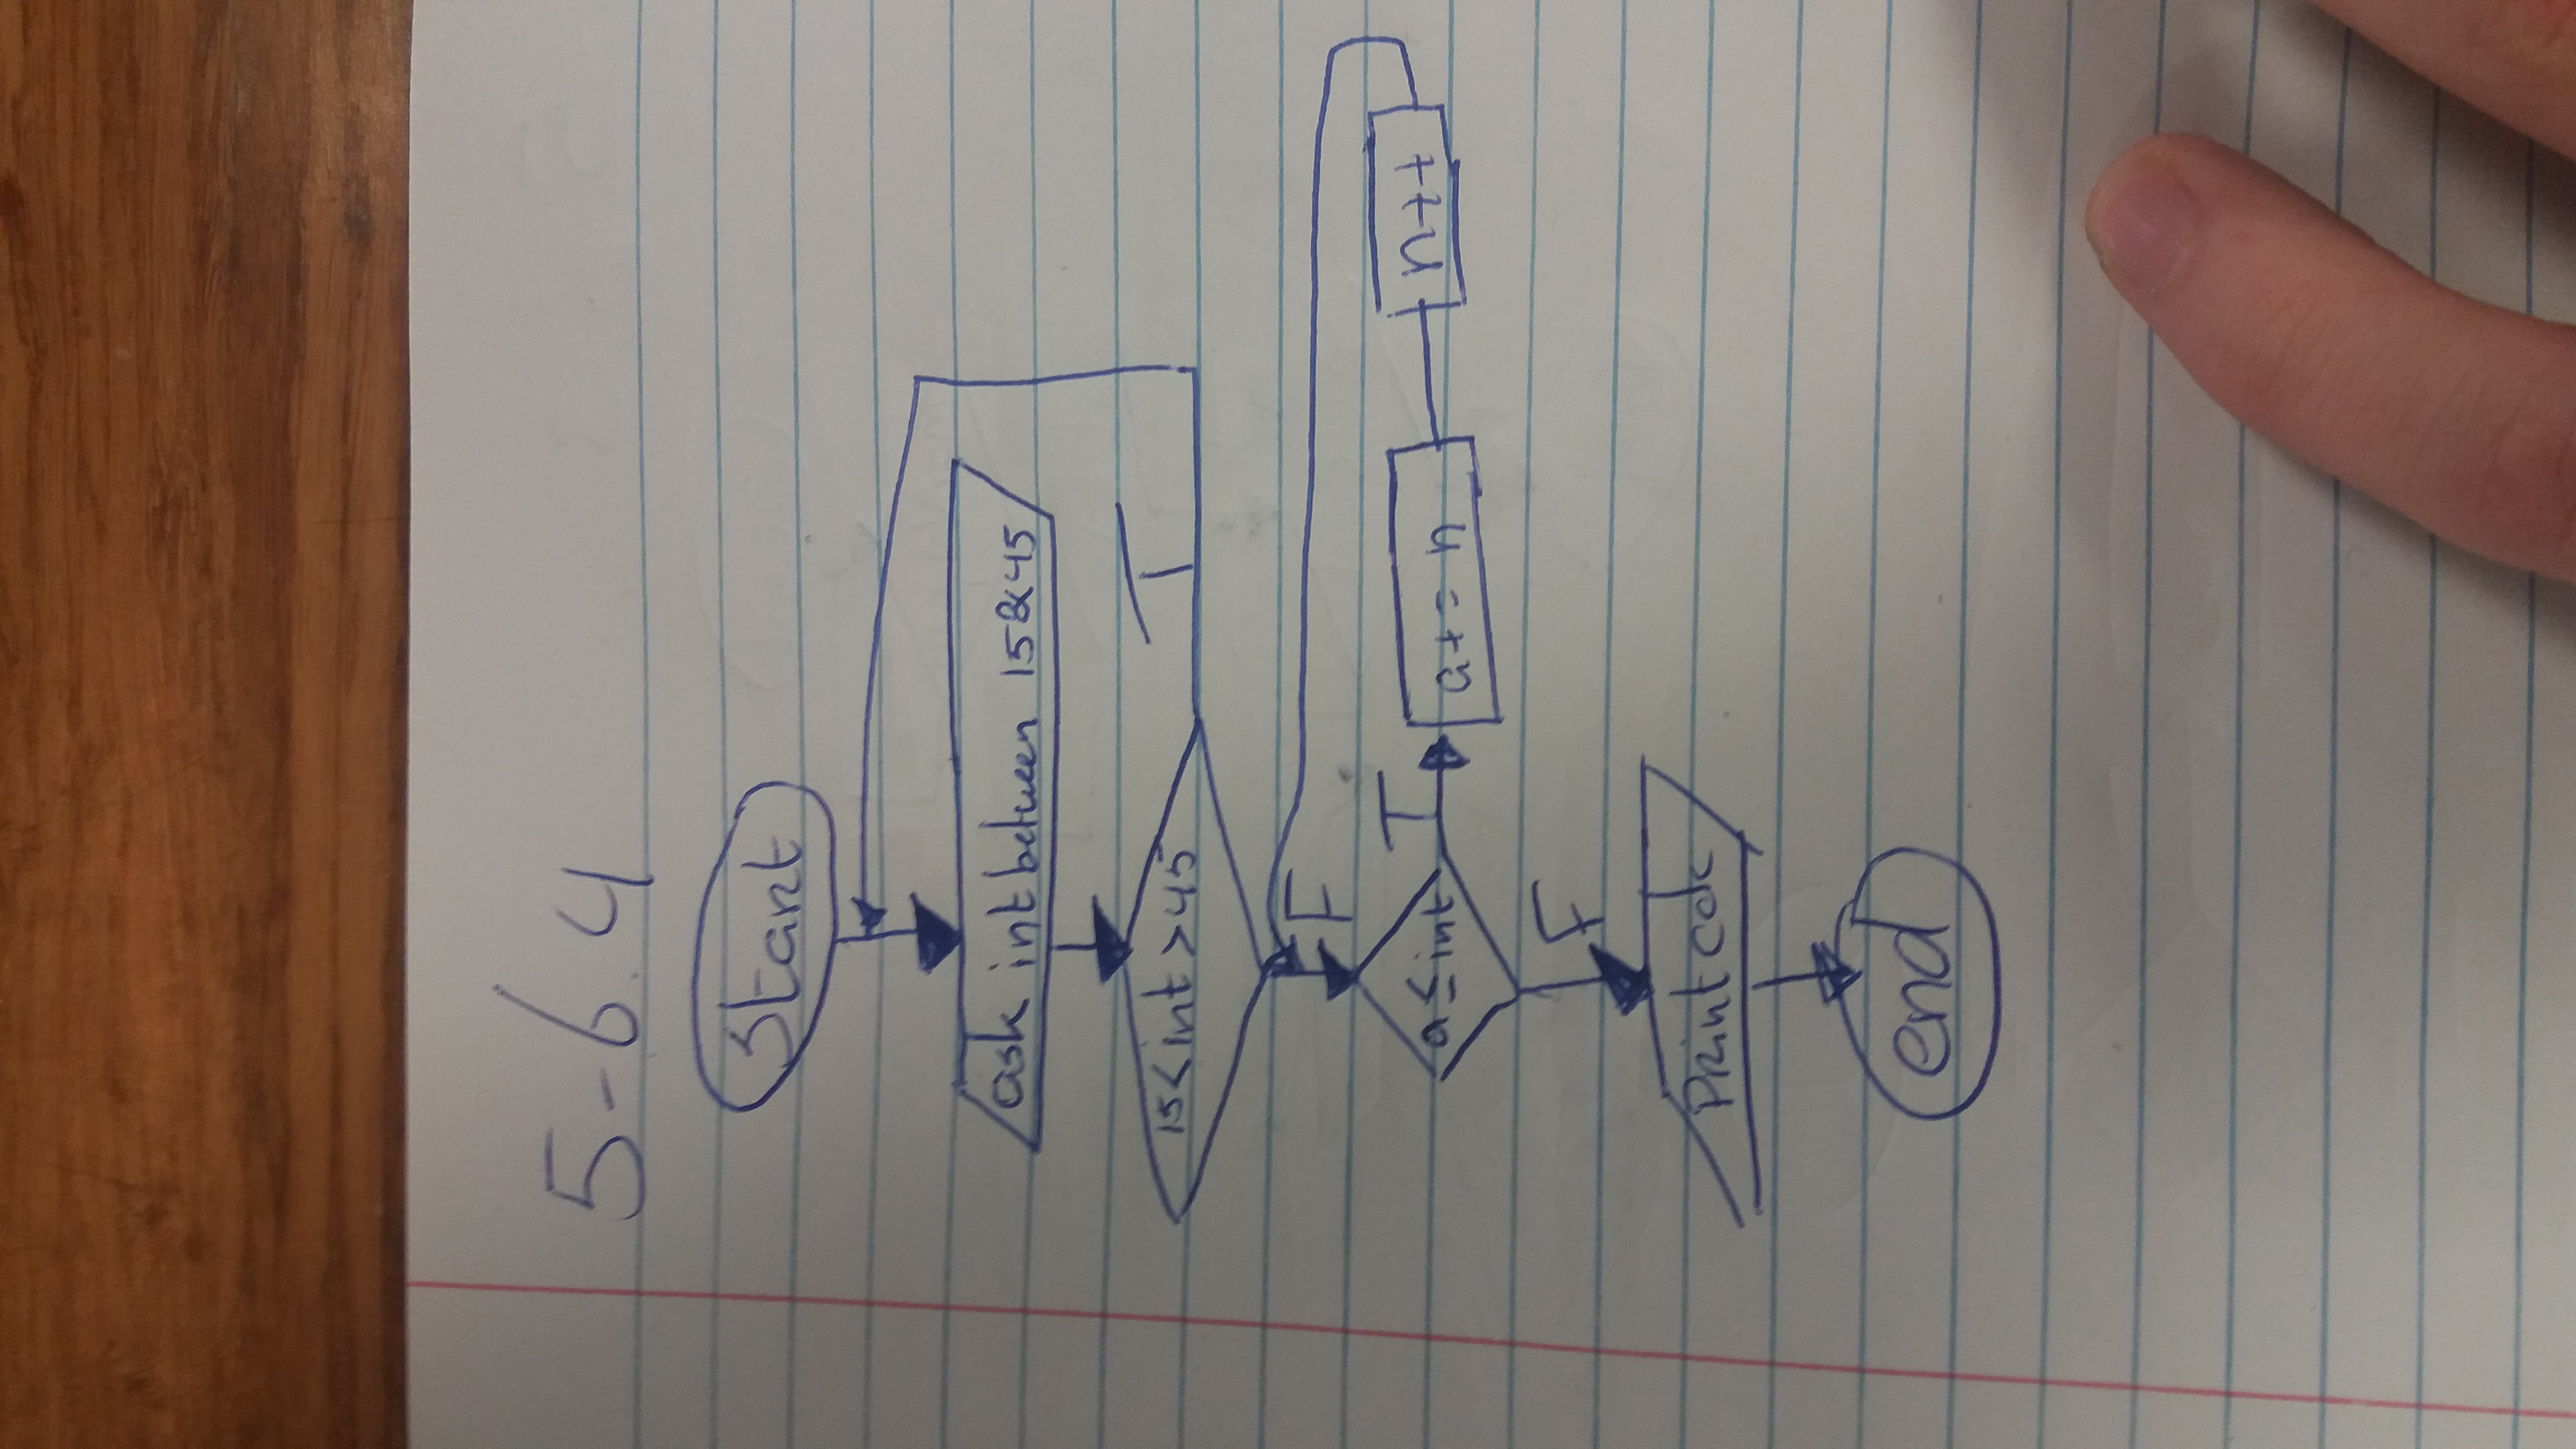 5-6.4
Start
ask int between 15&45
15< int >45
T
F
a≤int
T
a+=n
n++
F
Print
end